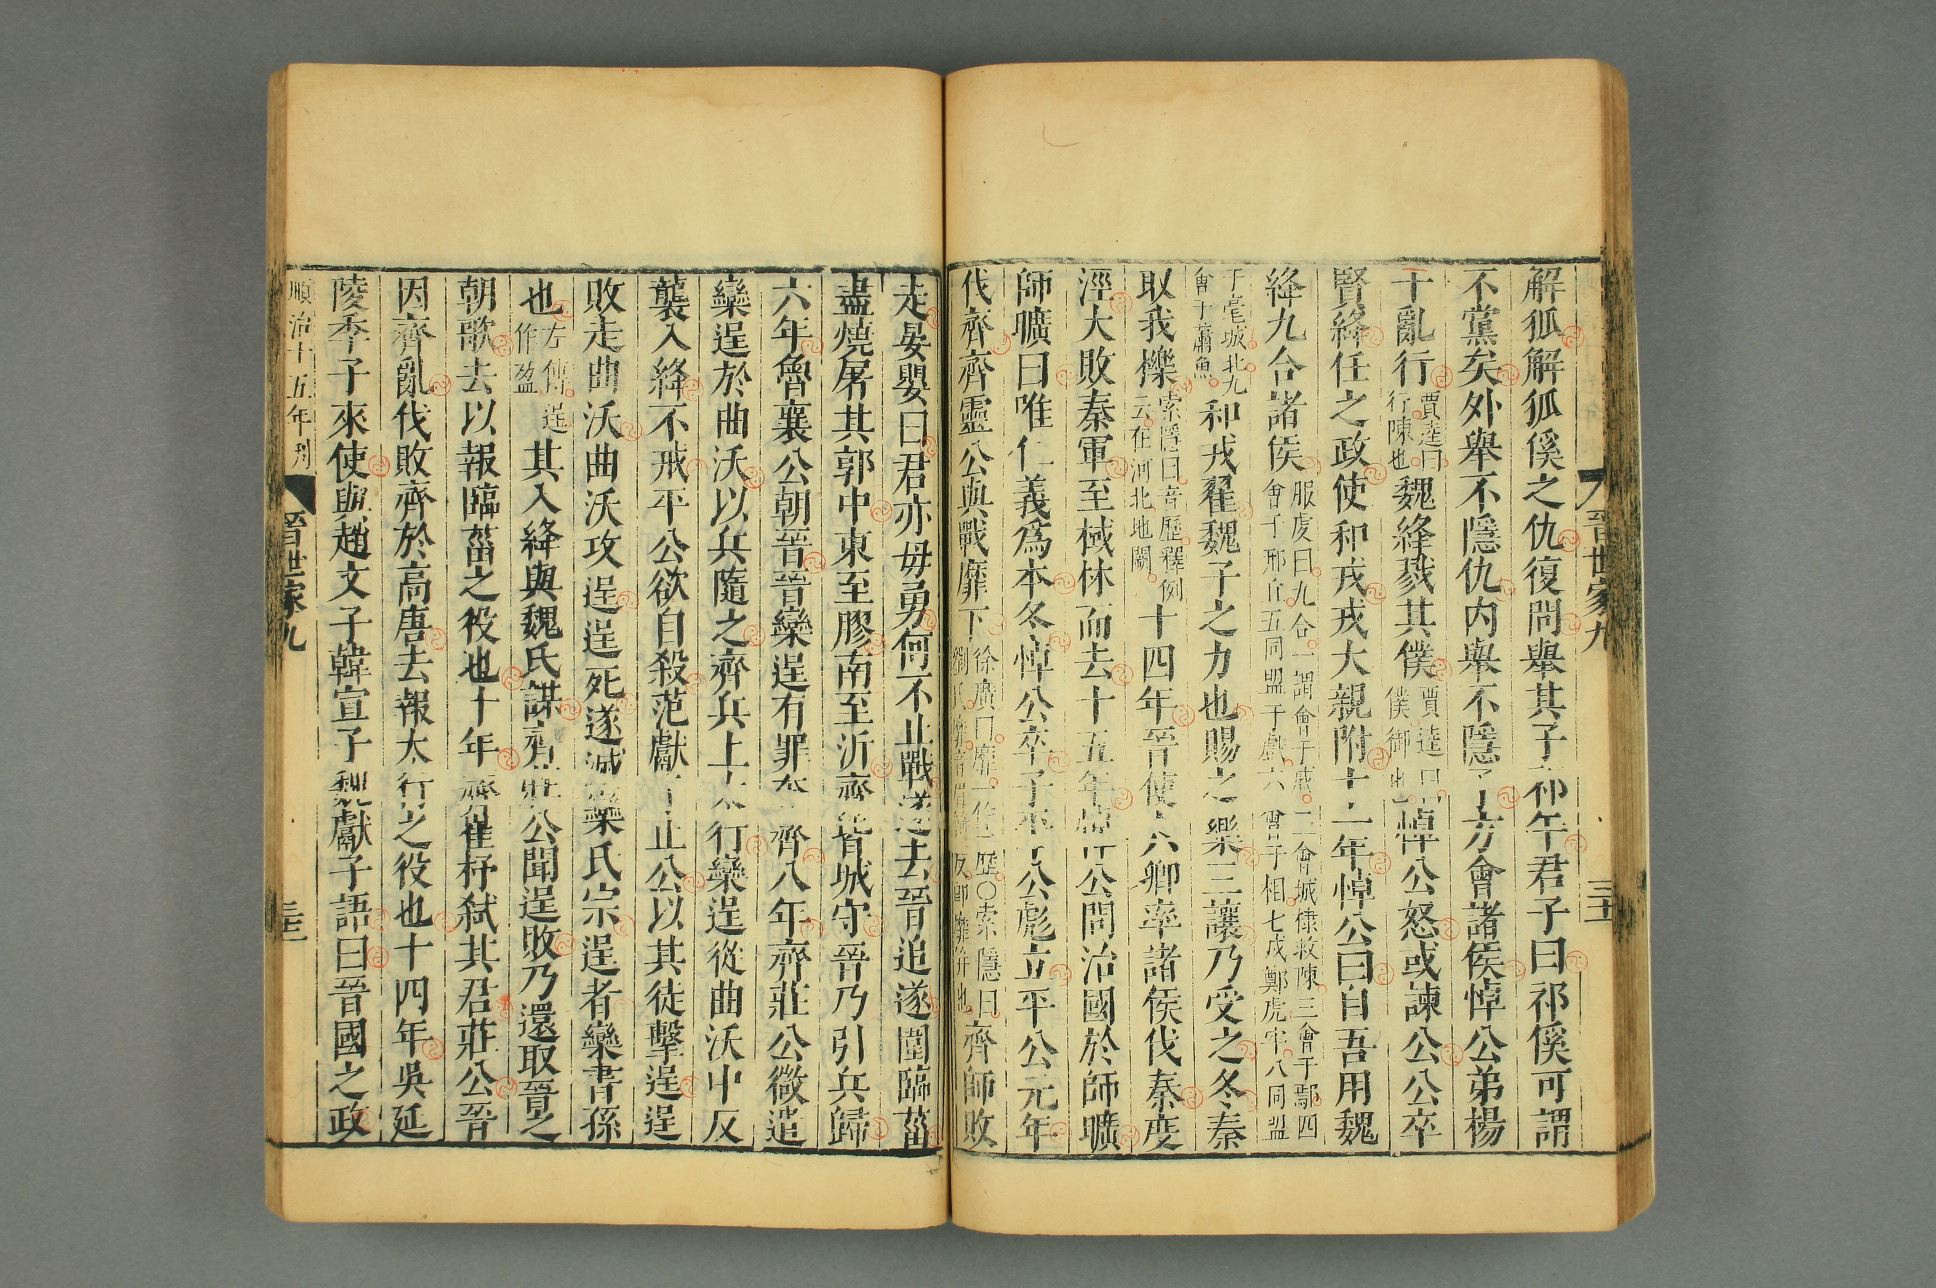 晉世家九
三十
解狐解狐傒之仇復問舉其子祁午君子曰祁傒可謂
不黨矣外舉不隱仇內舉不隱子方會諸侯悼公弟楊
干亂行賈逵曰行陳也魏絳戮其僕賈逵曰僕御也悼公怒或諫公公卒
賢絳任之政使和戎戎大親附十一年悼公曰自吾用魏
絳九合諸侯服虔曰九合一謂會于戚二會城棣救陳三會于鄢四會于邢丘五同盟于戲六會于相七戍鄭虎牢八同盟
于亳城北九會于蕭魚和戎翟魏子之力也賜之樂三讓乃受之冬秦
取我櫟索隱曰音歷釋例云在河北地闕十四年晉使六卿率諸侯伐秦度
涇大敗秦軍至棫林而去十五年悼公問治國於師曠
師曠曰唯仁義爲本冬悼公卒子平公彪立平公元年
伐齊齊靈公與戰靡下徐廣曰靡一作歷○索隱曰劉氏靡音眉綺反卽靡笄也齊師敗
走晏嬰曰君亦毋勇何不止戰遂去晉追遂圍臨菑
盡燒屠其郭中東至膠南至沂齊皆城守晉乃引兵歸
六年魯襄公朝晉晉欒逞有罪奔齊八年齊莊公微遣
欒逞於曲沃以兵隨之齊兵上太行欒逞從曲沃中反
襲入絳絳不戒平公欲自殺范獻子止公以其徒擊逞逞
敗走曲沃曲沃攻逞逞死遂滅欒氏宗逞者欒書孫
也左傳逞作盈其入絳與魏氏謀齊莊公聞逞敗乃還取晉之
朝歌去以報臨菑之役也十年齊崔杼弒其君莊公晉
因齊亂伐敗齊於高唐去報太行之役也十四年吳延
陵季子來使與趙文子韓宣子魏獻子語曰晉國之政
順治十五年刊
晉世家九